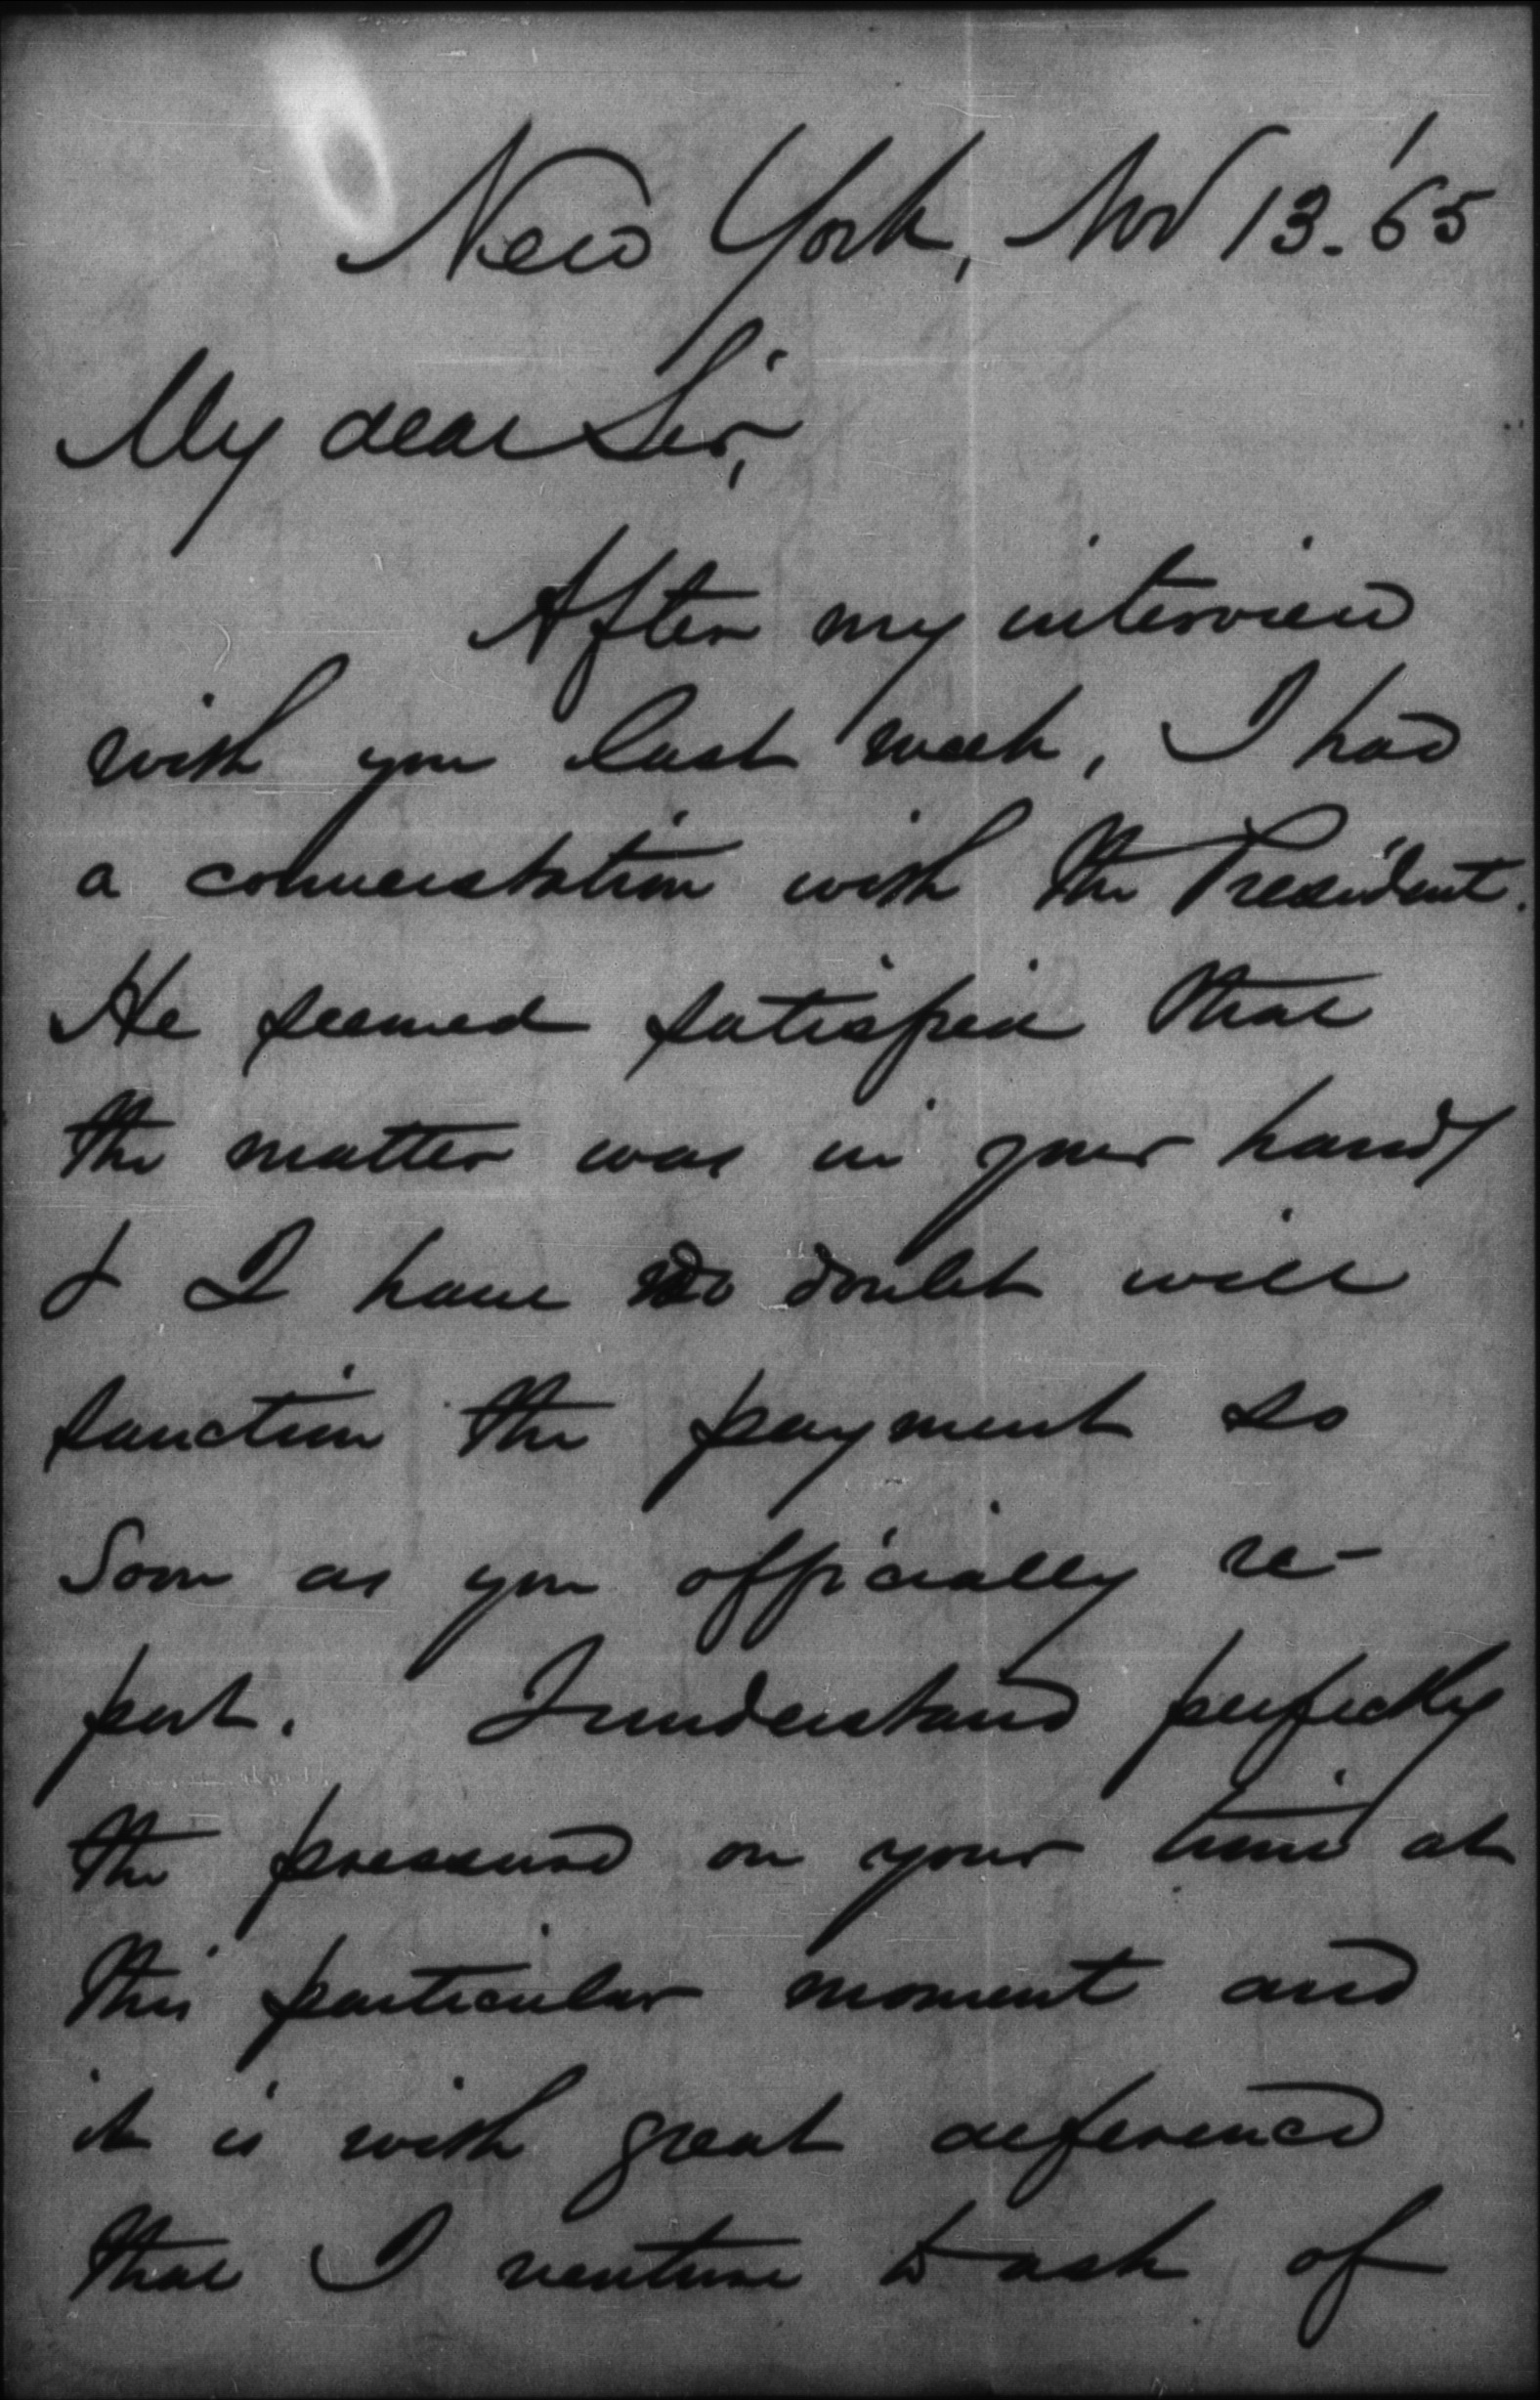 New York, Nov 13. '65
My dear Sir,
After my interview
with you last week, I had
a converstation with the President.
He seemed satisfied that
the matter was in your hands
& I have no doubt will
sanction the payment so
soon as you officially re-
port. I understand perfectly
the pressure on your time at
this particular moment and
it is with great deference
that I venture to ask of